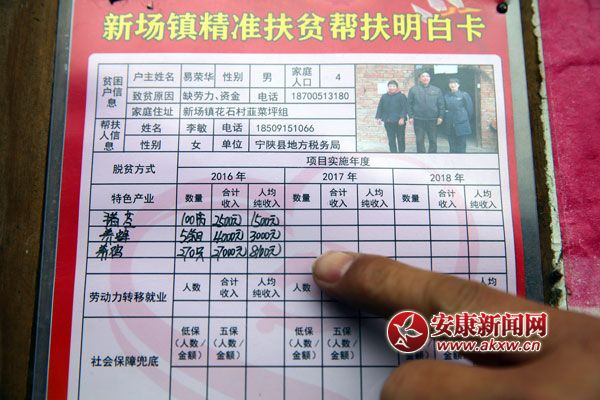 新场镇精准扶贫帮扶明白卡
贫困户信息 户主姓名 易荣华 性别 男 家庭人口 4
致贫原因 缺劳力、资金 电话 18700513180
家庭住址 新场镇花石村韭菜坪组
帮扶人信息 姓名 李敏 电话 18509151066
性别 女 单位 宁陕县地方税务局
脱贫方式 项目实施年度
2016 年 2017 年 2018 年
特色产业 数量 合计收入 人均纯收入 数量 合计收入 人均纯收入 数量 合计收入 人均纯收入
100亩 2500元 1500元
养蜂 4000元 3000元
养鸡 270只 27000元
劳动力转移就业 人数 合计收入 人均纯收入 人数 合计收入
社会保障兜底 低保(人数/金额) 五保(人数/金额) 低保(人数/金额) 五保(人数/金额)
安康新闻网
www.akxw.cn